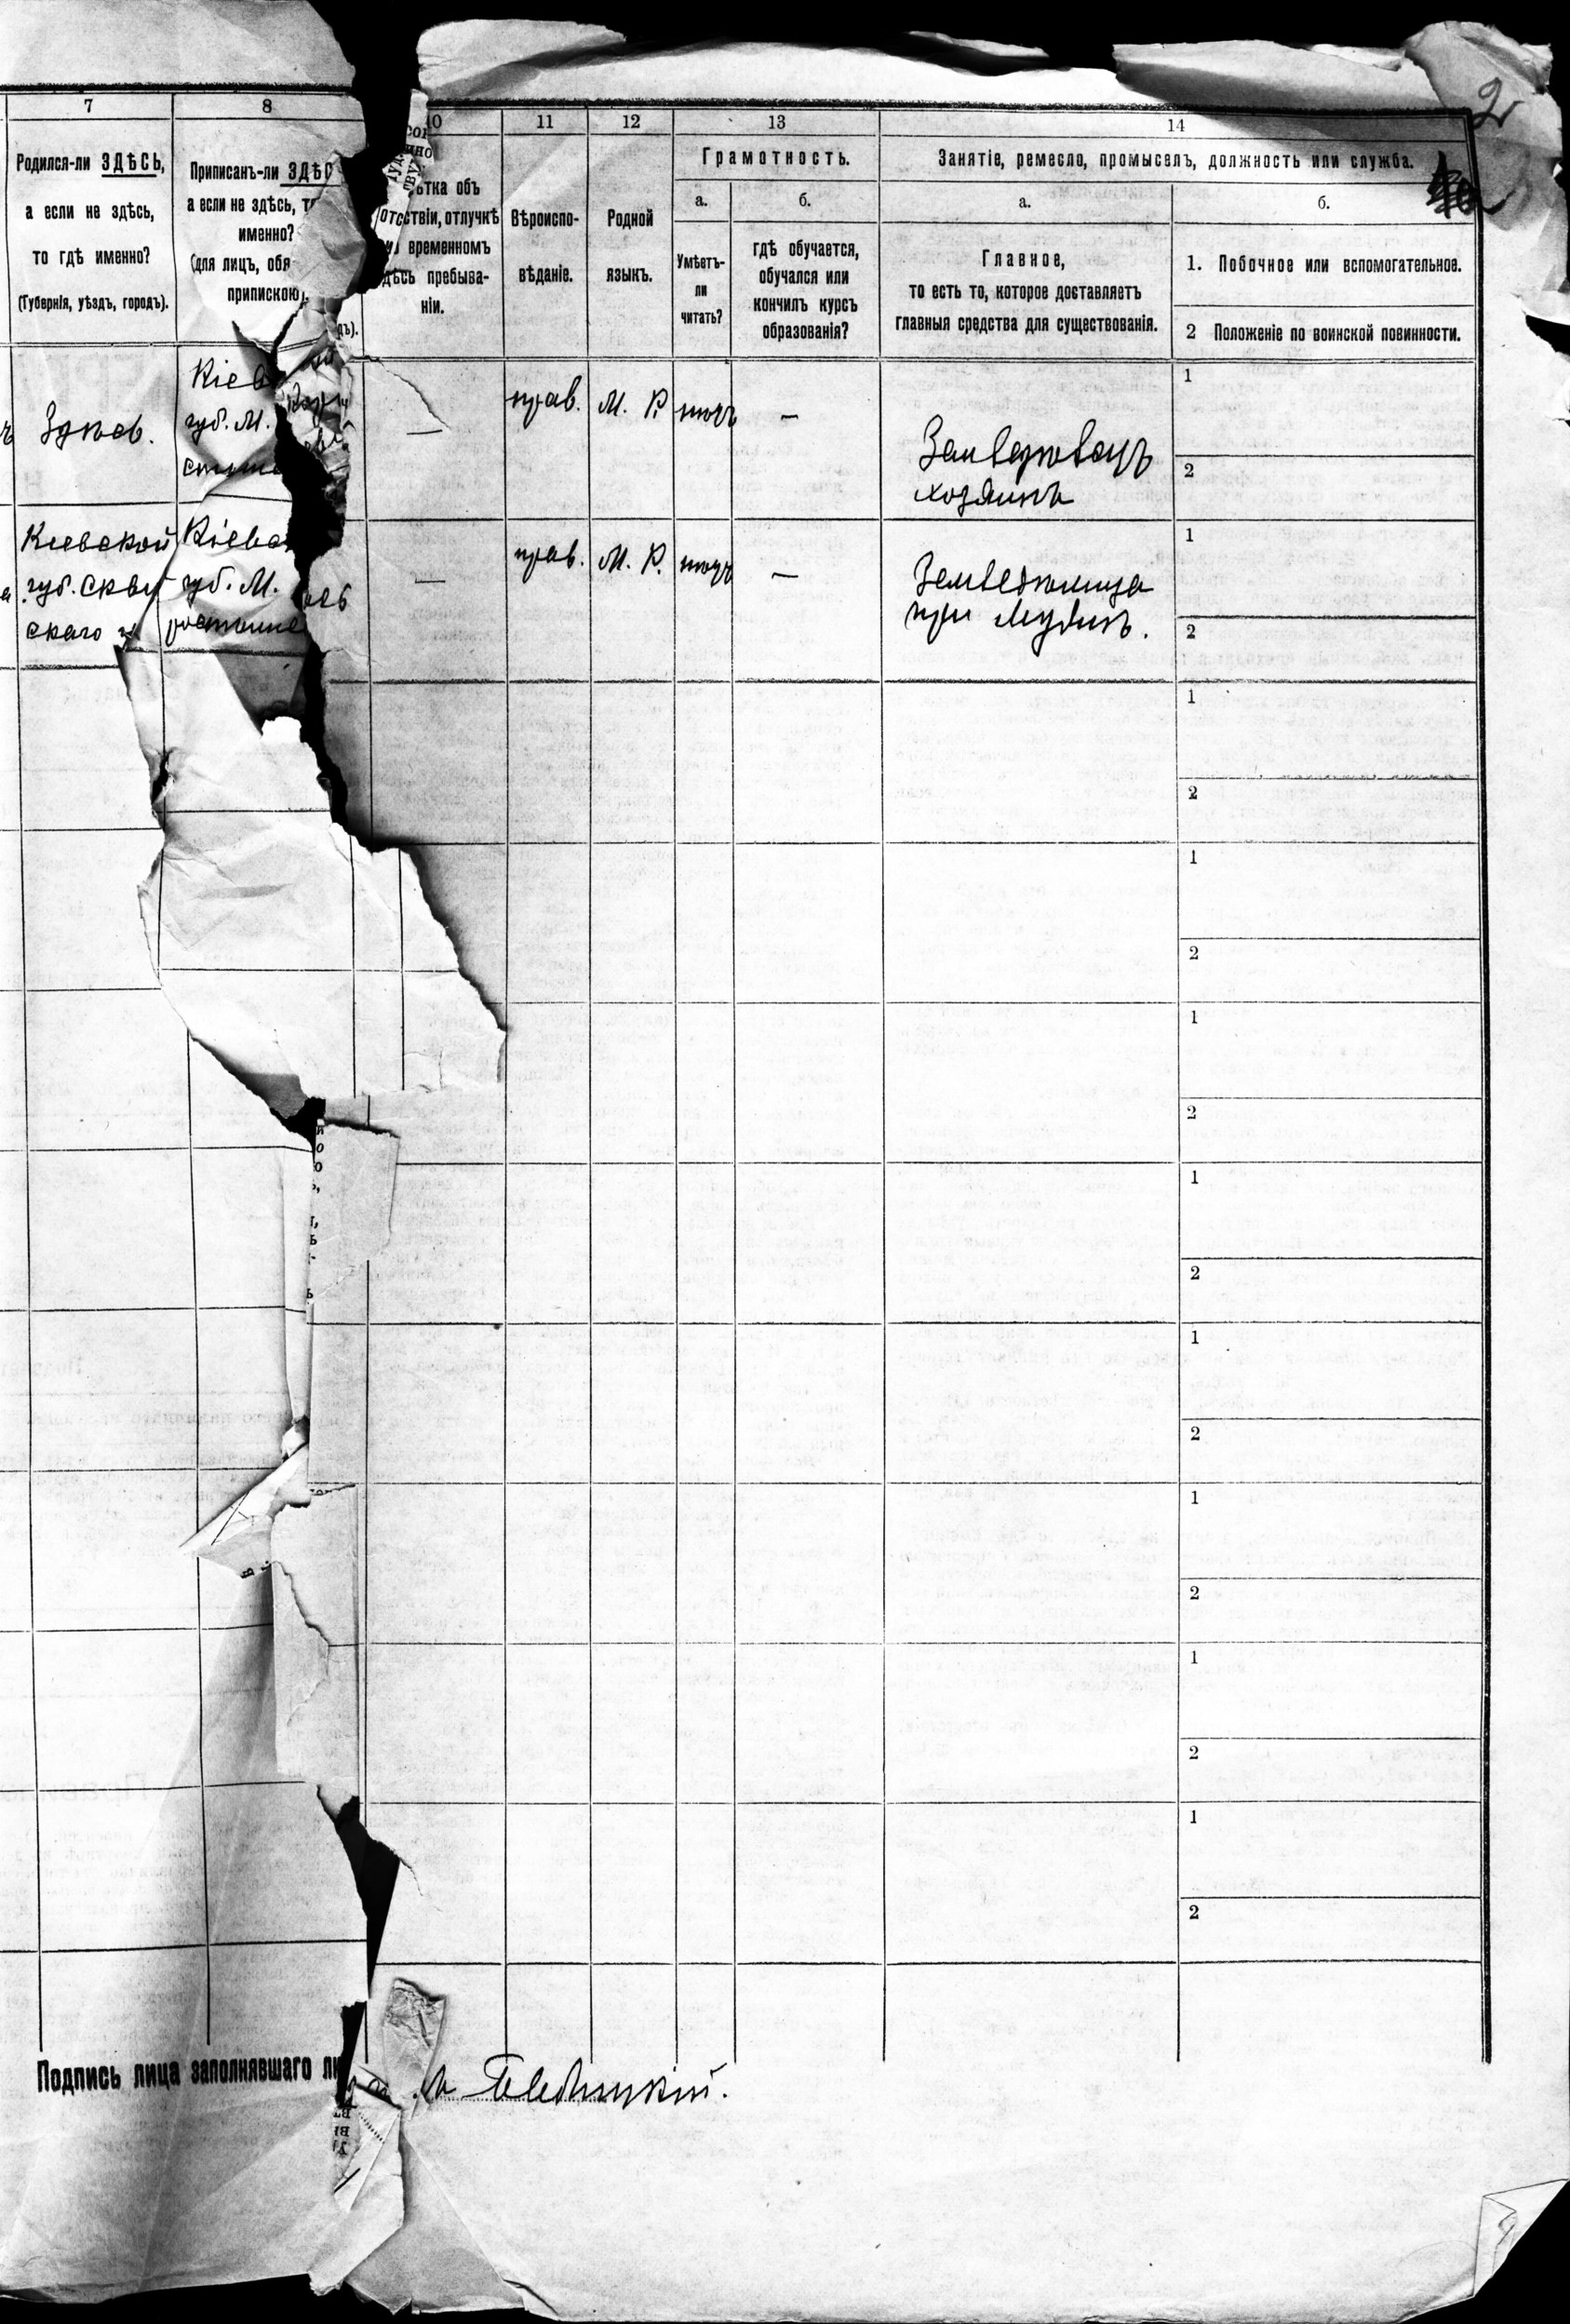 2
7
8
10
11
12
13
14
Родился-ли ЗДѢСЬ,
а если не здѣсь,
то гдѣ именно?
(Губернія, уѣздъ, городъ).
Приписанъ-ли ЗДѢС
а если не здѣсь, т
именно?
(для лицъ, обя
припискою).
дъ).
ѣтка объ
отсствіи, отлучкѣ
временномъ
дѣсь пребыва-
ніи.
Вѣроиспо-
вѣданіе.
Родной
языкъ.
Грамотность.
а.
б.
Умѣетъ-
ли
читать?
гдѣ обучается,
обучался или
кончилъ курсъ
образованія?
Занятіе, ремесло, промыселъ, должность или служба.
а.
б.
Главное,
то есть то, которое доставляетъ
главныя средства для существованія.
1. Побочное или вспомогательное.
2 Положеніе по воинской повинности.
Здѣсь.
Кіев
губ. М.
—
прав.
М. Р.
—
хозяинъ
1
2
Кіевской
губ. Скви
скаго у
Кіевс
губ. М.
—
прав.
М. Р.
—
при мужѣ.
1
2
1
2
1
2
1
2
1
2
1
2
1
2
1
2
1
2
Подпись лица заполнявшаго ли